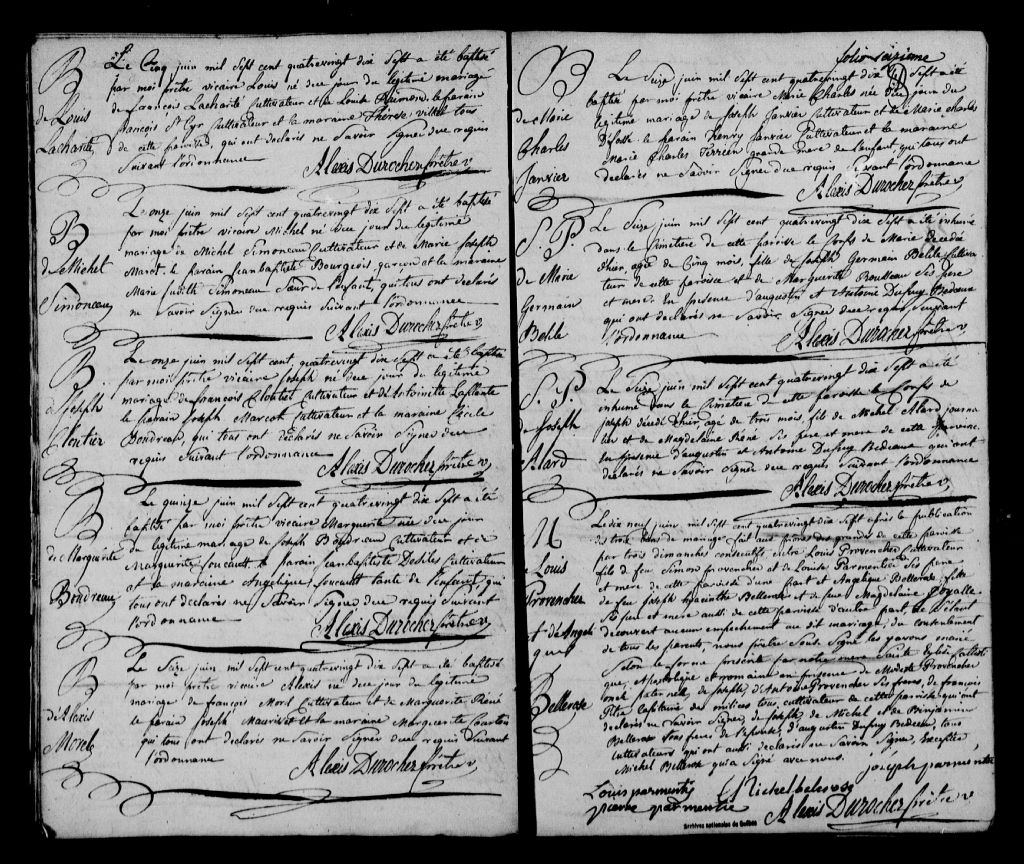 B
de Louis
Lacharité
Le Cinq juin mil Sept cent quatrevingt dix Sept a été baptisé
par moi prêtre vicaire Louis né du jour du légitime mariage
de françois Lacharité Cultivateur et de Louise le parain
françois St Cyr Cultivateur et la maraine Thérèse tous
de cette paroisse, qui ont declarés ne Savoir Signer due requis
Suivant l'ordonnance
Alexis Durocher prêtre v
B
de Michel
Simoneau
Le onze juin mil Sept cent quatrevingt dix Sept a été baptisé
par moi prêtre vicaire Michel né du jour du légitime
mariage de Michel Simoneau Cultivateur et de Marie Joseph
Marot. le parain jean baptiste Bourgeois garçon et la maraine
Marie judith Simoneau Sœur de l'enfant, qui tous ont declarés
ne Savoir Signer due requis Suivant l'ordonnance
Alexis Durocher prêtre v
B
de Joseph
Cloutier
Le onze juin mil Sept cent quatrevingt dix Sept a été baptisé
par moi prêtre vicaire Joseph né du jour du légitime
mariage de françois Cloutier Cultivateur et de Antoinette Laplante
le parain Joseph Marcot Cultivateur et la maraine Cecile
Boudreau, qui tous ont declarés ne Savoir Signer due
requis Suivant l'ordonnance
Alexis Durocher prêtre v
B
de Marguerite
Boudreau
Le quinze juin mil Sept cent quatrevingt dix Sept a été
baptisé par moi prêtre vicaire Marguerite née du jour
du légitime mariage de Joseph Boudreau Cultivateur et de
Marguerite foucault. le parain jean baptiste Cultivateur
et la maraine Angelique foucault tante de l'enfant, qui
tous ont declarés ne Savoir Signer due requis Suivant
l'ordonnance
Alexis Durocher prêtre v
B
de Alexis
Morel
Le Seize juin mil Sept cent quatrevingt dix Sept a été baptisé
par moi prêtre vicaire Alexis né du jour du légitime
mariage de françois Morel Cultivateur et de Marguerite
le parain Joseph et la maraine Marguerite
qui tous ont declarés ne Savoir Signer due requis Suivant
l'ordonnance
Alexis Durocher prêtre v
folio seizieme
B
de Marie
Charles
Janvier
Le Seize juin mil Sept cent quatrevingt dix Sept a été
baptisée par moi prêtre vicaire Marie Charles née du jour du
légitime mariage de Joseph Janvier Cultivateur et de Marie Charles
le parain Henry Janvier Cultivateur et la maraine
Marie Charles Terrien grande mere de l'enfant, qui tous ont
declarés ne Savoir Signer due requis Suivant l'ordonnance
Alexis Durocher prêtre v
S. P.
de Marie
Germain
Belile
Le Seize juin mil Sept cent quatrevingt dix Sept a été inhumé
dans le Cimetière de cette paroisse le Corps de Marie decedée
d'hier, agée de Cinq mois, fille de Joseph Germain Belile Cultiva-
teur de cette paroisse et de Marguerite Ses père
et mere. En presence d'augustin et Antoine Dupuy Bedeaux
qui ont declarés ne Savoir Signer due requis Suivant
l'ordonnance
Alexis Durocher prêtre v
S. P.
de Joseph
Alard
Le Seize juin mil Sept cent quatrevingt dix Sept a été
inhumé dans le Cimetière de cette paroisse le Corps de
Joseph decedé d'hier, agé de trois mois, fils de Michel Alard journa-
lier et de Magdelaine Ses père et mere de cette
En presence d'augustin et Antoine Dupuy Bedeaux qui ont
declarés ne Savoir Signer due requis Suivant l'ordonnance
Alexis Durocher prêtre v
M
de Louis
Provencher
et d'Angeli
que
Bellerose
Le dix neuf juin mil Sept cent quatrevingt dix Sept après la publication
de trois bans de mariage fait aux prônes des grandes de cette paroisse
par trois dimanches consecutifs entre Louis Provencher Cultivateur
fils de feu Simon Provencher et de Louise Parmentié Ses père
et mere de cette paroisse d'une part et Angelique Bellerose fille
de feu Joseph hyacinthe Bellerose et de feue Magdelaine
Ses père et mere aussi de cette paroisse d'autre part, ne S'étant
découvert aucun empechement au dit mariage, du consentement
de tous les parents, nous prêtre Sous Signé les avons marié
Selon la forme prescrite par notre mere Sainte Eglise Catholi
que, Apostolique et romaine en presence de Modeste Provencher
oncle paternel, de Joseph, d'Antoine Provencher Ses freres, de françois
Capitaine des milices tous cultivateurs de cette paroisse qui ont
declarés ne Savoir Signer, de Joseph, de Michel et de Benjamin
Bellerose Tous freres de l'épouse, d'augustin Dupuy Bedeau, tous
cultivateurs qui ont aussi declarés ne Savoir Signer, excepté,
Michel Bellerose qui a Signé avec nous.
joseph parmentier
Louis parmentie
Michel belerose
pierre parmentie
Alexis Durocher prêtre v
Archives nationales du Québec